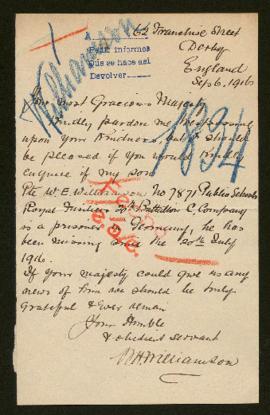 62 Franchise Street
Derby
England
Sep 6, 1916
A
Pedir informes
Que se hace así
Devolver
Williamson
1834
Your most Gracious Majesty
Kindly pardon me
upon your Kindness, but I should
be pleased if you would kindly
enquire if my son
Pte W. E. Williamson No 7871 Public Schools
Royal Fusiliers 20th Battallion C, Company
is a prisoner in Germany, he has
been missing since the 20th July
1916.
If your majesty could give us any
news of him we should be truly
Grateful & Ever remain
Your Humble
& obedient servant
Williamson